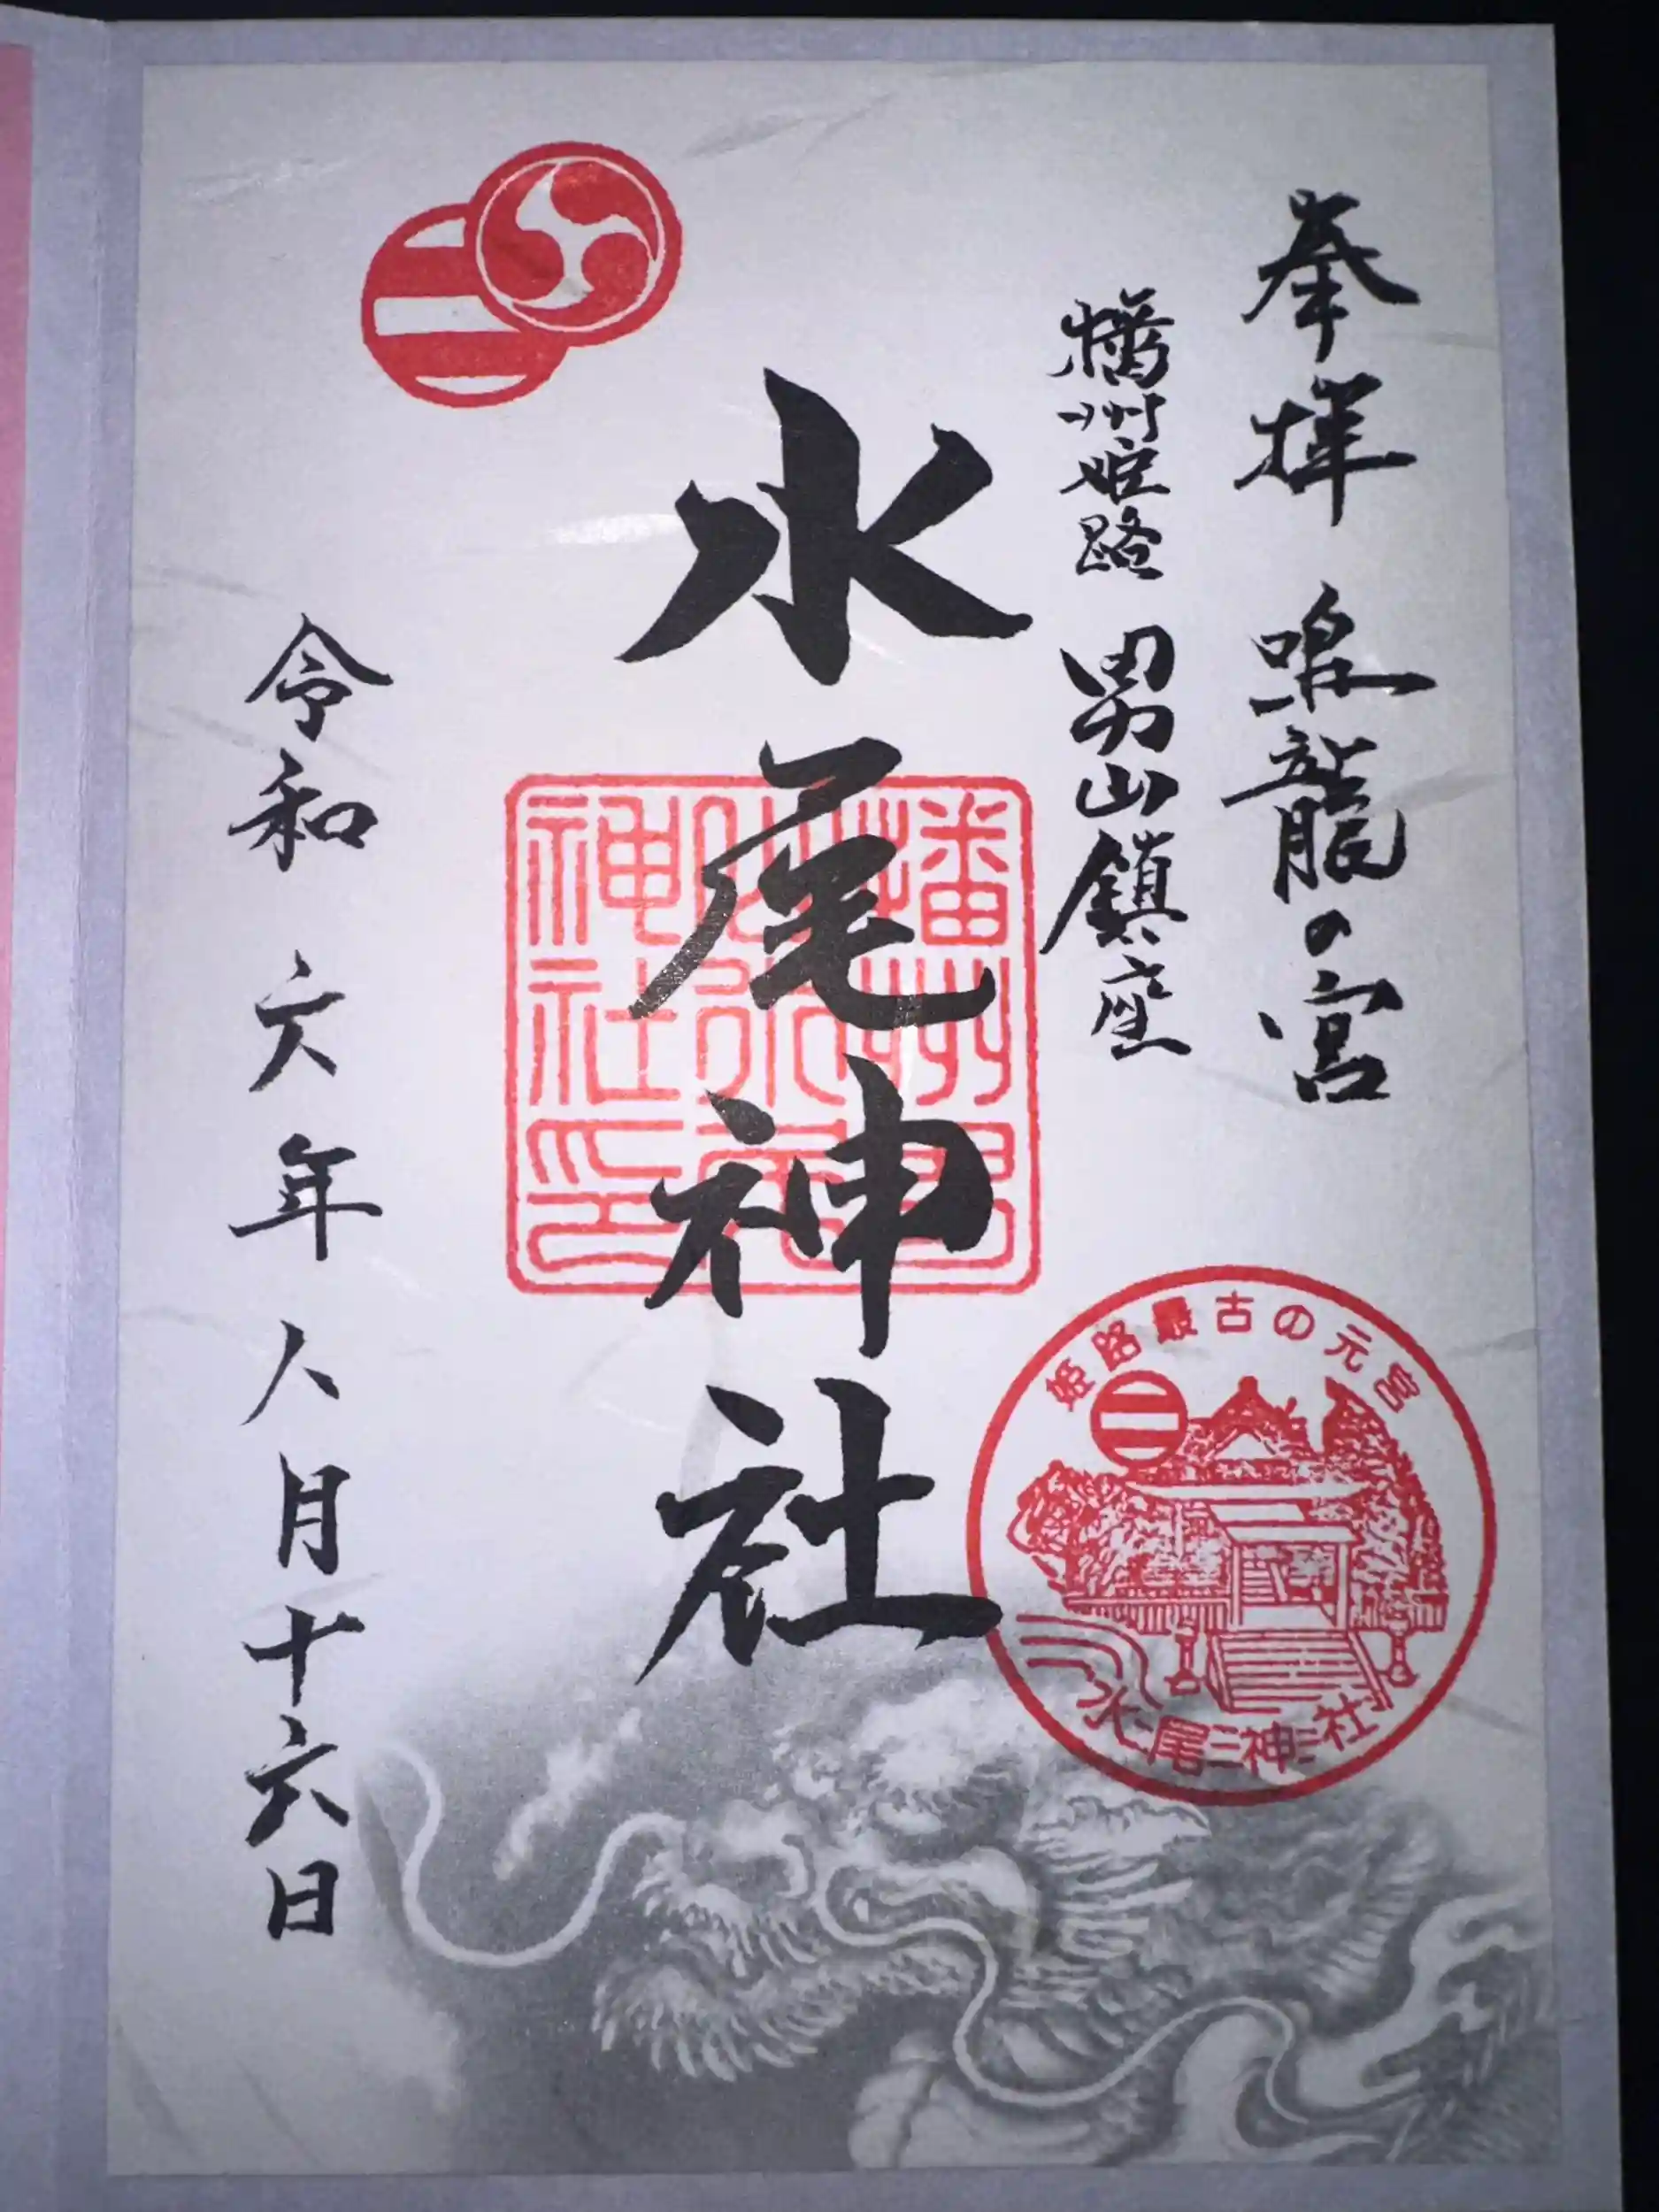 奉拝 鳴龍の宮
播州姫路 男山鎮座
水尾神社
令和六年八月十六日
播州男山水尾神社印
姫路最古の元宮
水尾神社